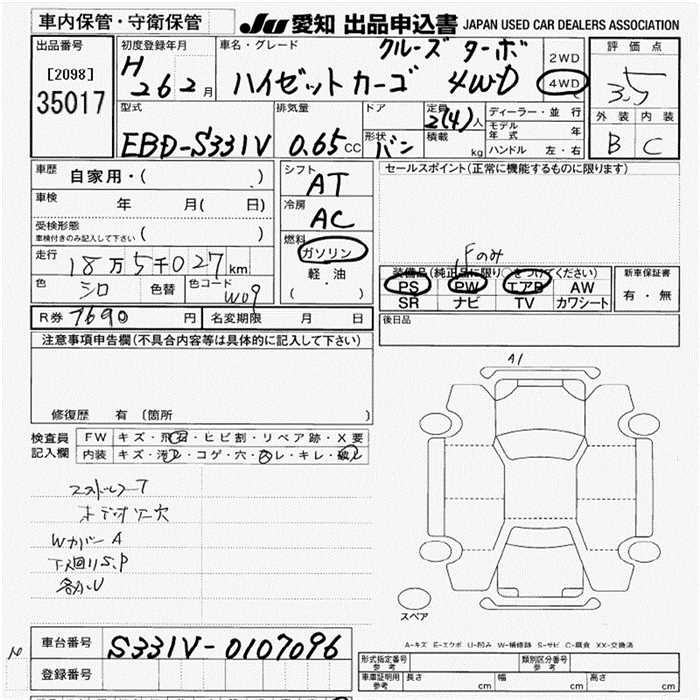 車内保管・守衛保管
JU 愛知 出品申込書 JAPAN USED CAR DEALERS ASSOCIATION
出品番号
[2098]
35017
初度登録年月
H 26 2 月
車名・グレード
クルーズ ターボ
ハイゼットカーゴ 4WD
2WD
4WD
評価点
3.5
外装 内装
B C
型式
EBD-S331V
排気量
0.65 CC
ドア
形状 バン
定員 2(4) 人
積載 kg
ディーラー・並 行
モデル年式 年
ハンドル 左・右
車歴 自家用・( )
車検 年 月( 日)
受検形態
車検付きのみ記入して下さい ( )
走行 18万5千027km
色 シロ 色替 色コード W09
シフト
AT
冷房
AC
燃料
ガソリン
軽油
( ・ )
セールスポイント(正常に機能するものに限ります)
Fのみ
装備品(純正品に限り○をつけてください)
PS PW エアB AW
SR ナビ TV カワシート
新車保証書
有・無
R券 7690 円 名変期限 月 日
後日品
注意事項申告欄(不具合内容等は具体的に記入して下さい)
修復歴 有 〔箇所 〕
検査員
記入欄
FW キズ・飛石・ヒビ割・リペア跡・X要
内装 キズ・汚レ・コゲ・穴・スレ・キレ・破レ
Wカバー A
下回りS,P
各小U
A1
スペア
A-キズ E-エクボ U-凹み W-補修跡 S-サビ C-腐食 XX-交換済
車台番号 S331V-0107096
登録番号
型式指定番号
参考
類別区分番号
参考
車庫証明用
参考
長さ cm 幅 cm 高さ cm